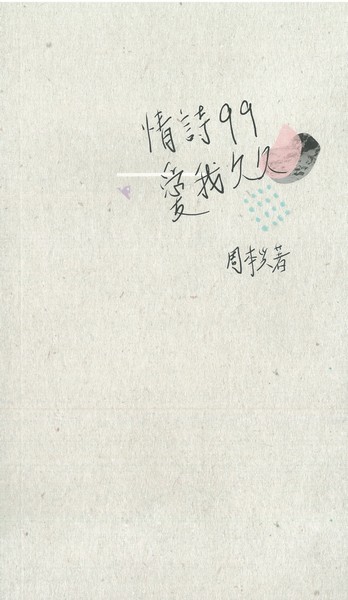 情詩99
愛我久久
周 著